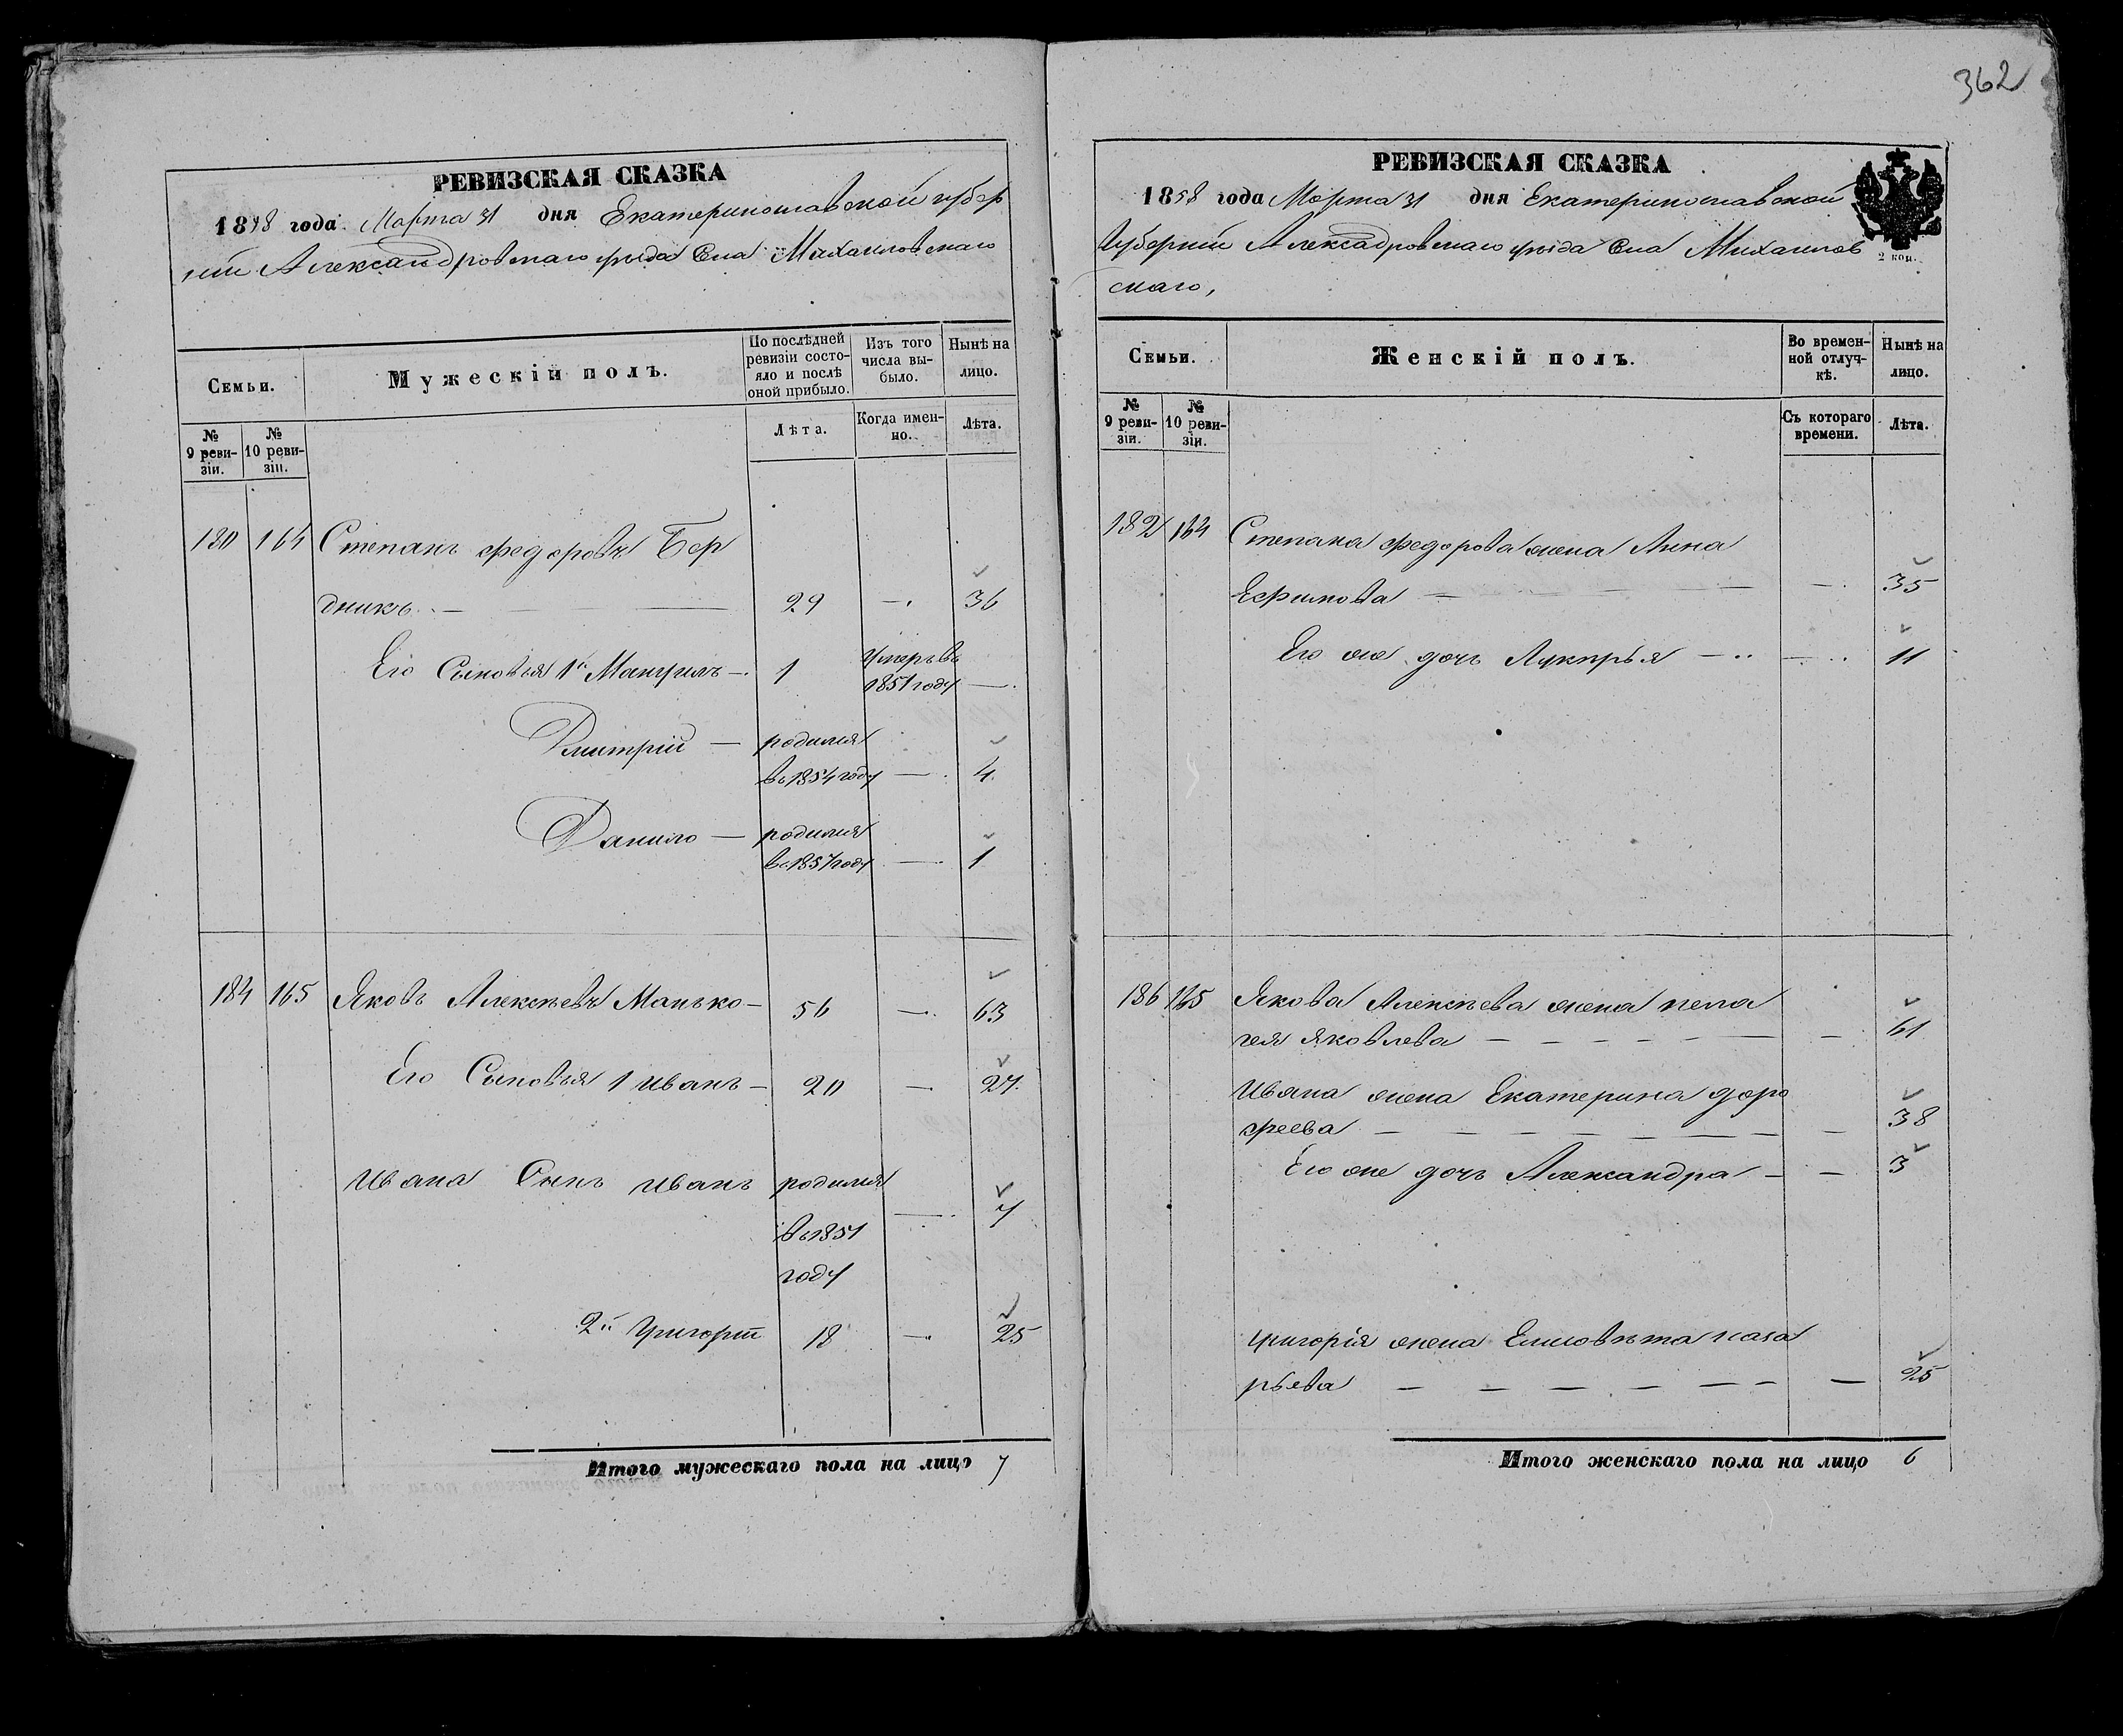 362
РЕВИЗСКАЯ СКАЗКА
1858 года Марта 31 дня Екатеринославской губер
нии Александровскаго уѣзда Села Михайловскаго
Семьи.
Мужескій полъ.
По послѣдней ревизіи состо-
яло и послѣ
оной прибыло.
Изъ того
числа вы-
было.
Нынѣ на
лицо.
№
9 реви-
зіи.
№
10 реви-
зіи.
Лѣта.
Когда имен-
но.
Лѣта.
180 164 Степанъ Федоровъ Бер
дникъ — 29 — 36
Его Сыновья 1й Мануилъ — 1 Умеръ въ
1851 году —
Дмитрій — родился
въ 1854 году — 4
Данило — родился
въ 1857 году — 1
184 165 Яковъ Алексѣевъ Манько — 56 — 63
Его Сыновья 1 Иванъ — 20 — 27
Ивана Сынъ Иванъ родился
въ 1851 — 7
году
2й Григорій 18 — 25
Итого мужескаго пола на лицо 7
РЕВИЗСКАЯ СКАЗКА
1858 года Марта 31 дня Екатеринославской
Губерніи Александровскаго уѣзда Села Михайлов
скаго,
2 коп.
Семьи.
Женскій полъ.
Во времен-
ной отлуч-
кѣ.
Нынѣ на
лицо.
№
9 реви-
зіи.
№
10 реви-
зіи.
Съ котораго
времени.
Лѣта.
182 164 Степана Федорова жена Анна
Ефимова — — 35
Его же дочь Лукирья — — 11
186 165 Якова Алексѣева жена Пела
гея Яковлева — — 61
Ивана жена Екатерина Доро
феева — — 38
Его же дочь Александра — — 3
Григорія жена Елисовѣта Наза
рьева — — 25
Итого женскаго пола на лицо 6